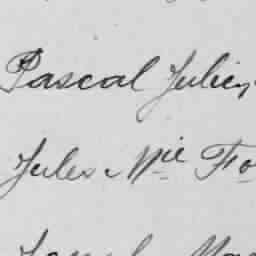 Pascal Julien
Jules Mie Fo